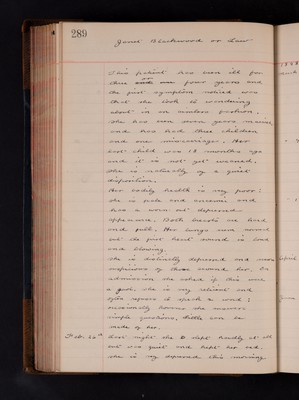 289
Janet Blackwood or Law
This patient has been ill for
three or four years and
the first symptom noticed was
that she took to wandering
about in an aimless fashion.
She has been seven years married
and has had three children
and one miscarriage. Her
last child was 18 months ago
and it is not yet weaned.
She is naturally of a quiet
disposition.
Her bodily health is very poor:
she is pale and anaemic and
has a worn out depressed
appearance. Both hands are
and puffy. Her lungs seem sound
but the first heart sound is loud
and blowing.
She is distinctly depressed and
suspicious of those around her. On
admission she asked if this was
a gaol. She is very reticent and
often refuses to speak a word;
occasionally however she answers
simple questions, little can be
made of her.
Last night she slept hardly at all
but was quiet and kept her bed.
She is very depressed this morning